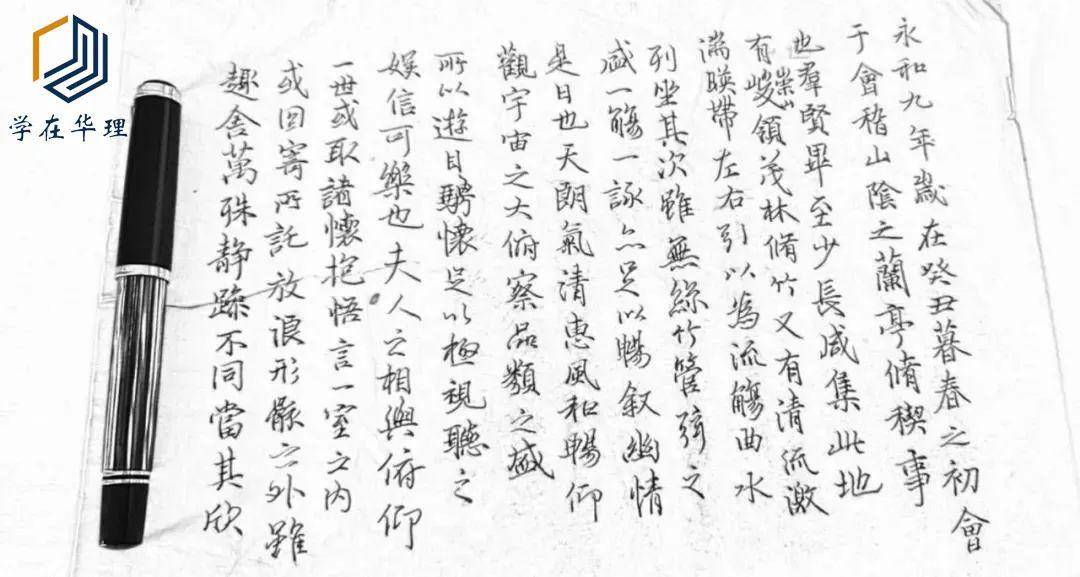 学在华理
永和九年歲在癸丑暮春之初會
于會稽山陰之蘭亭脩稧事
也羣賢畢至少長咸集此地
有崇峻領茂林脩竹又有清流激
湍暎帶左右引以為流觴曲水
列坐其次雖無絲竹管弦之
盛一觴一詠亦足以暢叙幽情
是日也天朗氣清惠風和暢仰
觀宇宙之大俯察品類之盛
所以遊目騁懷足以極視聽之
娛信可樂也夫人之相與俯仰
一世或取諸懷抱悟言一室之内
或因寄所託放浪形骸之外雖
趣舍萬殊静躁不同當其欣